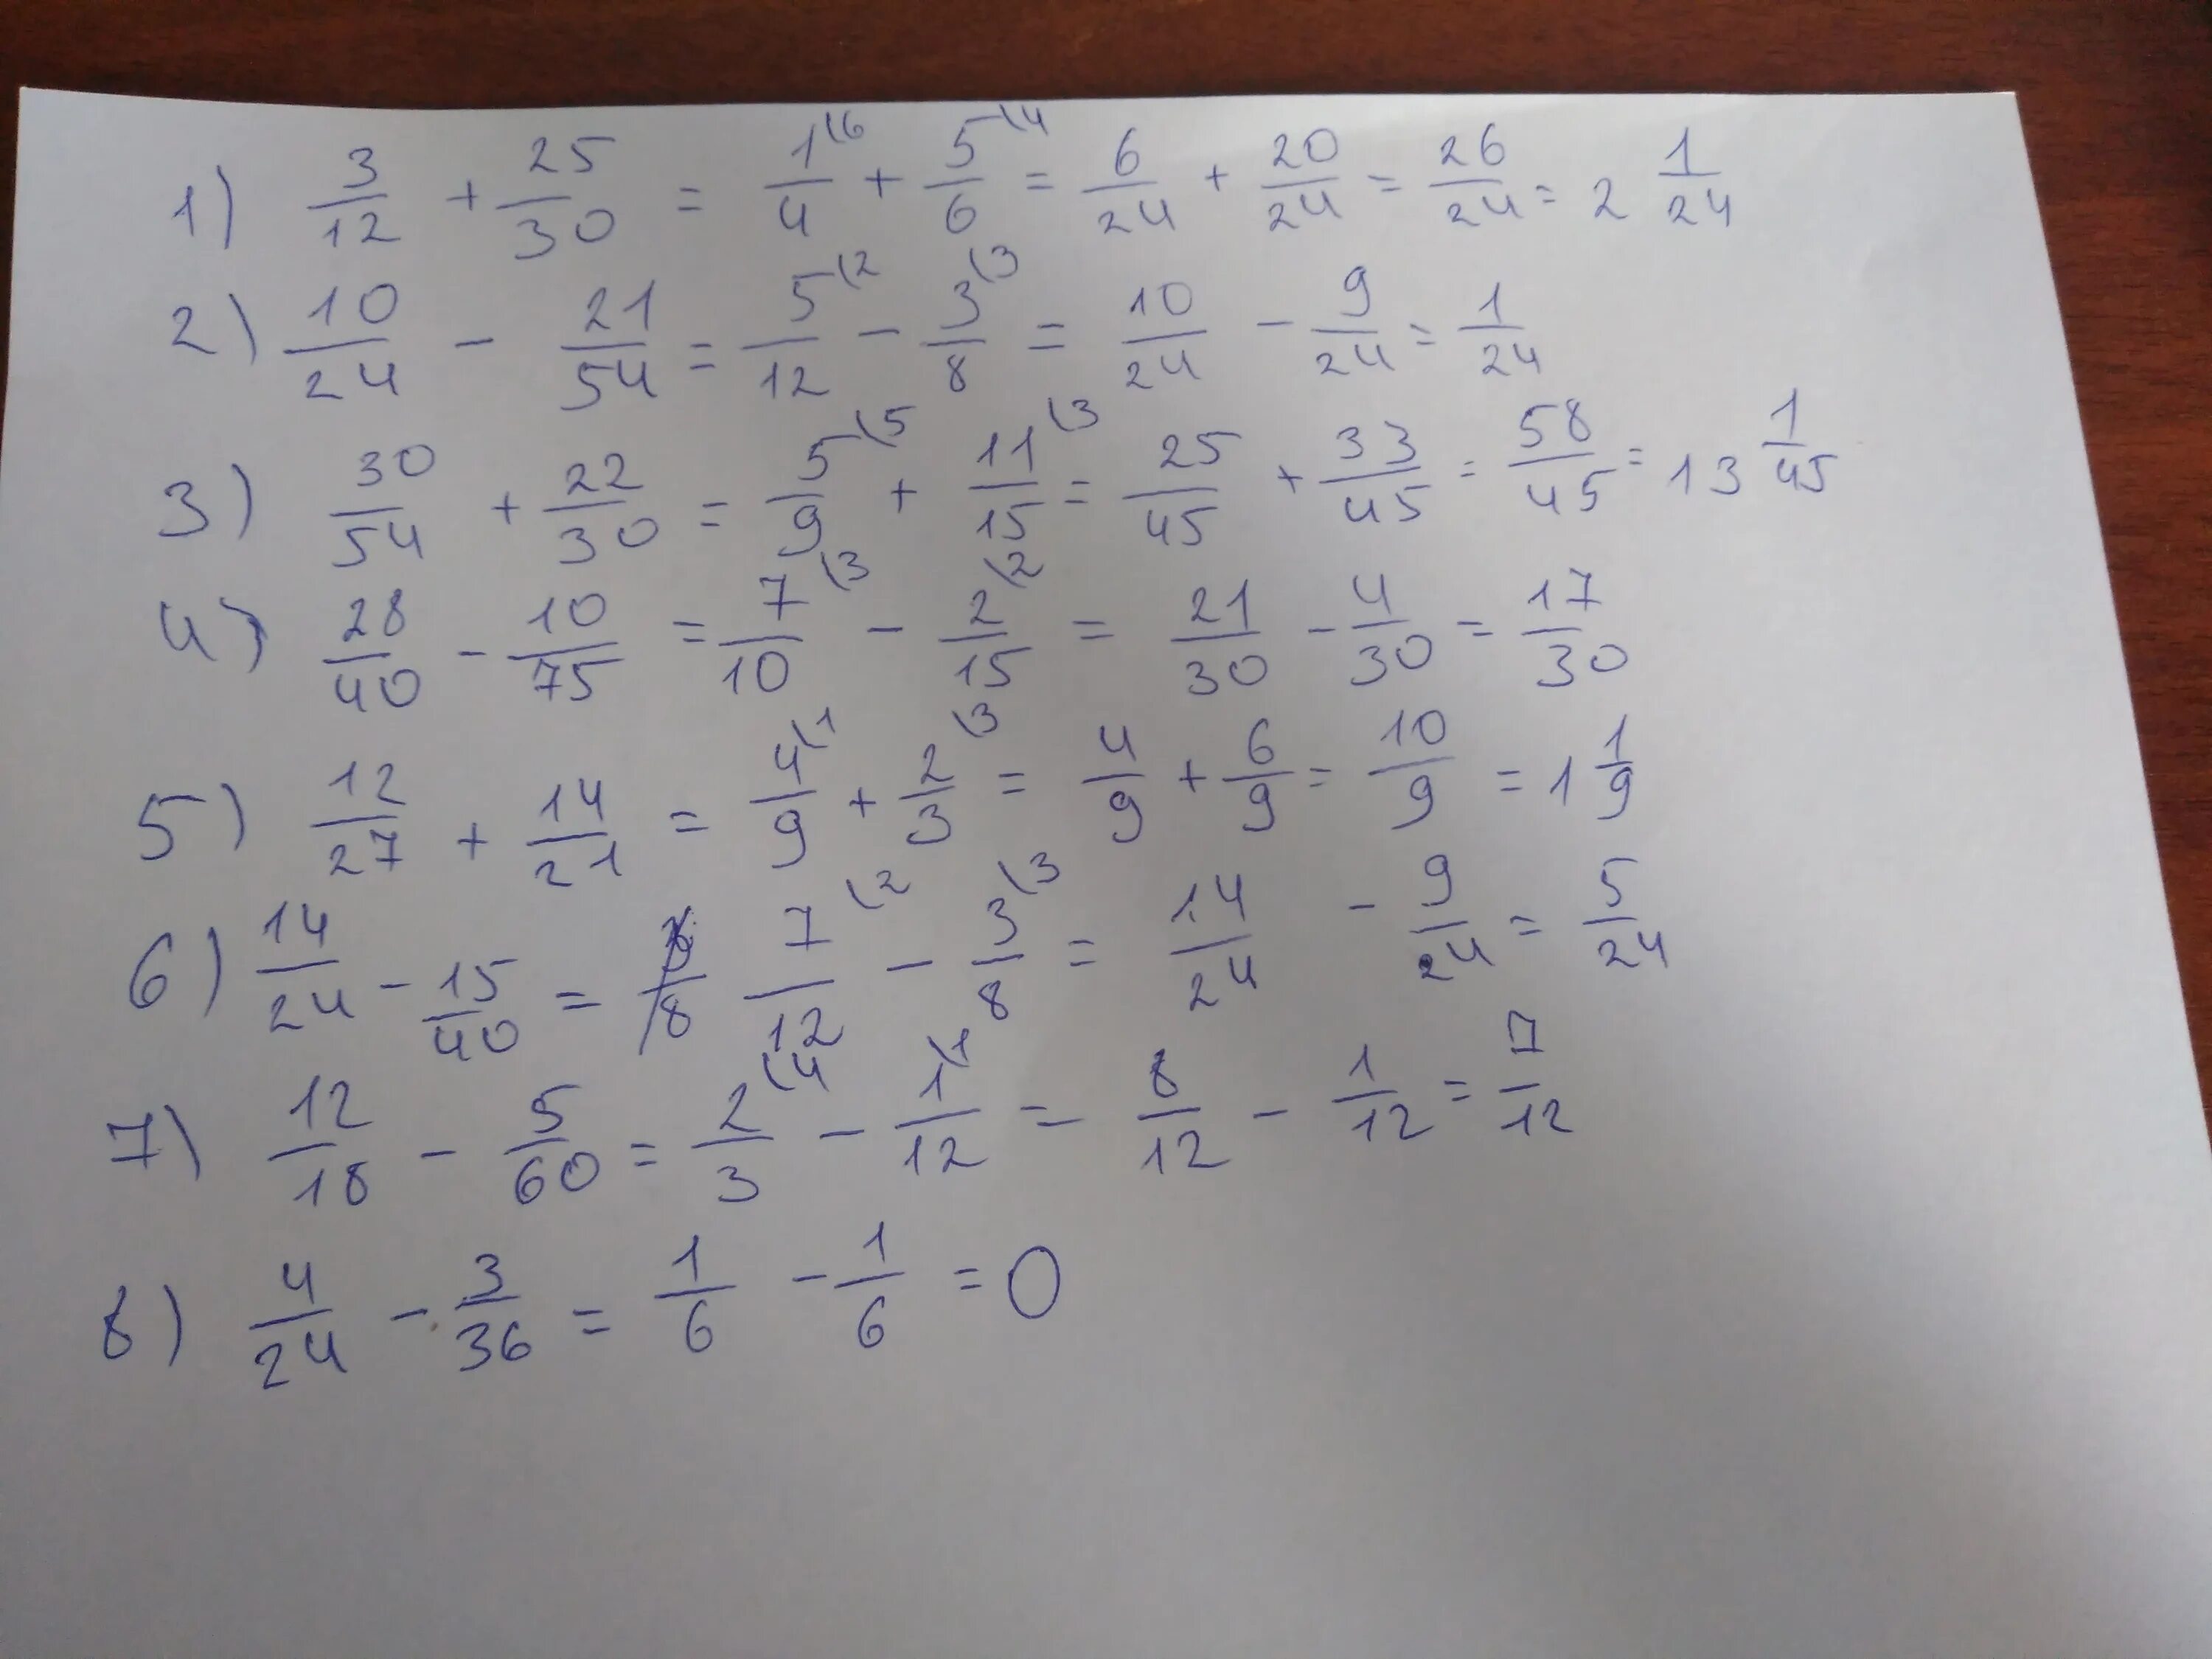 1) 3/12 + 25/30 = 1\6/4 + 5\4/6 = 6/24 + 20/24 = 26/24 = 2 1/24
2) 10/24 - 21/54 = 5\2/12 - 3\3/8 = 10/24 - 9/24 = 1/24
3) 30/54 + 22/30 = 5\5/9 + 11\3/15 = 25/45 + 33/45 = 58/45 = 13 1/45
4) 28/40 - 10/75 = 7\3/10 - 2\2/15 = 21/30 - 4/30 = 17/30
5) 12/27 + 14/21 = 4\1/9 + 2\3/3 = 4/9 + 6/9 = 10/9 = 1 1/9
6) 14/24 - 15/40 = 7\2/12 - 3\3/8 = 14/24 - 9/24 = 5/24
7) 12/18 - 5/60 = 2\4/3 - 1\1/12 = 8/12 - 1/12 = 7/12
8) 4/24 - 3/36 = 1/6 - 1/6 = 0